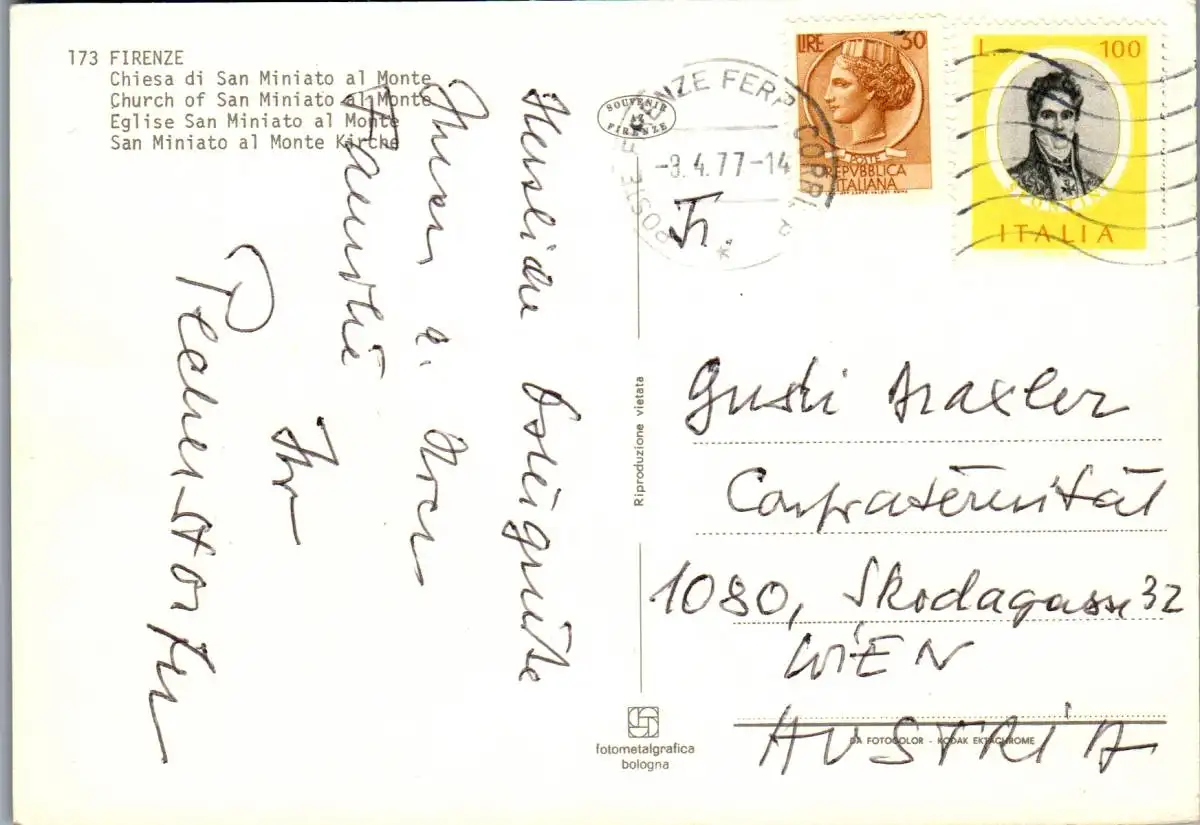 173 FIRENZE
Chiesa di San Miniato al Monte
Church of San Miniato al Monte
Eglise San Miniato al Monte
San Miniato al Monte Kirche
Herzliche Ostergrüße
Ihnen u. Ihrer
Familie
Ihr
SOUVENIR
FIRENZE
POSTE FIRENZE FERR. CORRI. 2
-8.4.77-14
LIRE 30
POSTE
REPVBBLICA
ITALIANA
L. 100
ITALIA
Fr.
Gusti Draxler
Confraternität
1080, Skodagasse 32
WIEN
AUSTRIA
Riproduzione vietata
fotometalgrafica
bologna
DA FOTOCOLOR - KODAK EKTACHROME